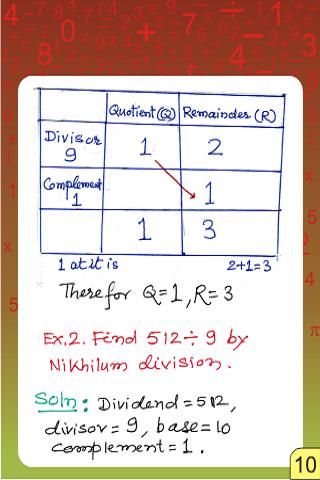 Quotient (Q) Remainder (R)
Divisor 9 1 2
Complement 1 1
1 3
1 at it is 2+1=3
Therefor Q=1, R=3
Ex.2. Find 512÷9 by
Nikhilum division.
Soln: Dividend=512,
divisor=9, base=10
complement=1.
10